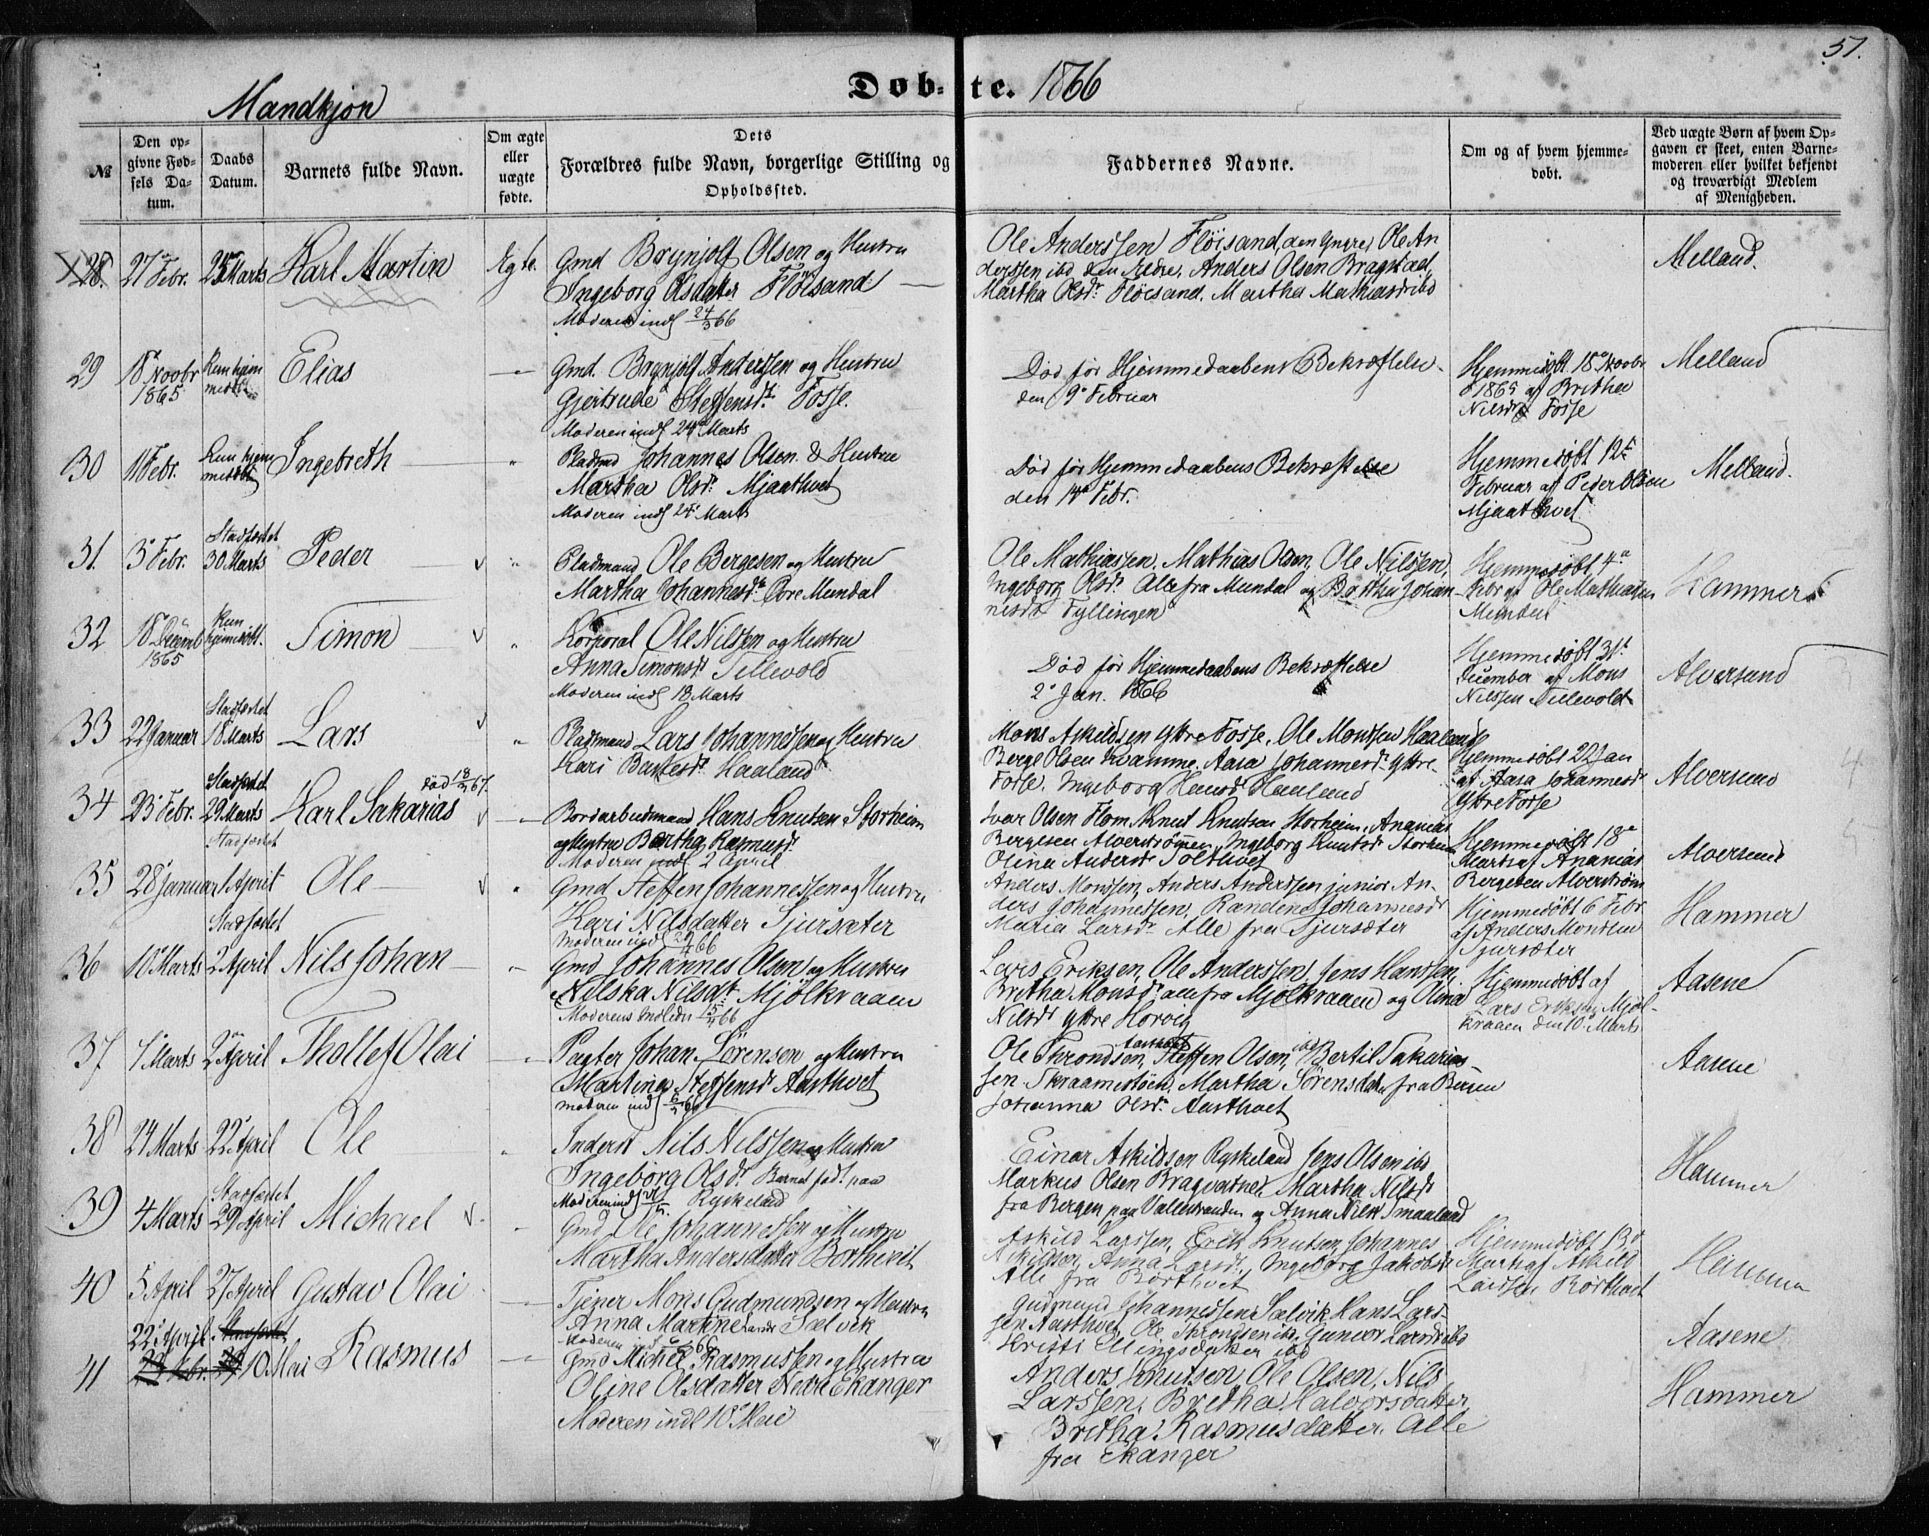 57.
Døb-te. 1866
Mandkjøn
№
Den op-
givne Fød-
sels Da-
tum.
Daabs
Datum.
Barnets fulde Navn.
Om ægte
eller
uægte
fødte.
Dets
Forældres fulde Navn, borgerlige Stilling og
Opholdssted.
Faddernes Navne.
Om og af hvem hjemme-
døbt.
Ved uægte Børn af hvem Op-
gaven er skeet, enten Barne-
moderen eller hvilket bekjendt
og troværdigt Medlem
af Menigheden.
28. 27 Febr. 25 Marts Karl Martin Ægte.
Gmd Brynjolf Olsen og Hustru
Ingeborg Olsdatter Fløisand
Moderen indl 24/3 66
Ole Anderssen Fløisand, den Yngre, Ole An
derssen ibd den Ældre, Anders Olsen Bragstad,
Martha Olsdr Fløisand, Martha Mathiasdr ibd
Melland.
29 18 Novbr 1865 Kun hjem
medøbt Elias
Gmd. Brynjolf Anderssen og Hustru
Gjertrude Steffensdr Fosse.
Moderen indl 24 Marts
Død før Hjemmedaabens Bekræftelse
den 9 Februar
Hjemmedøbt 18 Novbr
1865 af Britha
Nilsdr Fosse
Melland
30 11 Febr. Kun hjem
medøbt Ingebreth "
Pladsmd Johannes Olsen & Hustru
Martha Olsdr Mjaathvet
Moderen indl 24 Marts
Død før Hjemmedaabens Bekræftelse
den 14 Febr.
Hjemmedøbt 12te
Februar af Peder Olsen
Mjaathvet
Melland.
31. 3 Febr. Stadfæstet
30 Marts Peder "
Pladsmand Ole Bergesen og Hustru
Martha Johannesdr Øvre Mundal
Ole Mathiassen, Mathias Olsen, Ole Nilssen,
Ingeborg Olsdr Alle fra Mundal og Britha Johan-
nesdr Fyllingen
Hjemmedøbt 4
Febr af Ole Mathiassen
Mundal
Hammer
32 18 Decemb 1865 Kun
hjemmedøbt. Simon "
Korporal Ole Nilssen og Hustru
Anna Simonsdr Tellevold
Moderen indl 18 Marts
Død før Hjemmedaabens Bekræftelse
2 Jan. 1866
Hjemmedøbt 31t
December af Mons
Nilssen Tellevold
Alversund
33 22 Januar Stadfæstet
18 Marts Lars "
Pladsmand Lars Johannessen og Hustru
Kari Haaland
Mons Askildsen Ytre Fosse, Ole Monssen Haaland
Berge Olsen Kvamme, Aasa Johannesdr Ytre
Fosse, Ingeborg Hansdr Haaland
Hjemmedøbt 22 Jan
af Aasa Johannesdr
Ytre Fosse
Alversund
34 23 Febr. Stadfæstet
29 Marts Karl Sakarias Død 18/2 67.
Bordarbeidsmand Hans Knutsen Storheim
og Hustru Bertha Rasmusdr
Moderen indl 2 April
Ivar Olsen Flom, Knut Knutsen Storheim, Ananias
Bergesen Alverstrømen, Ingeborg Knutsdr Storheim
Olina Andersdr Tolthvet
Hjemmedøbt 18
Marts af Ananias
Bergesen Alverstrøm
Alversund
35 28 Januar Stadfæstet
1 April Ole "
Gmd Steffen Johannessen og Hustru
Kari Nilsdatter Tjursæter
Anders Monssen, Anders Anderssen junior, An-
ders Johannessen, Johannesdr
Maria Larsdr Alle fra Tjursæter
Hjemmedøbt 6 Febr
af Anders Monssen
Tjursæter
Hammer
36 10 Marts Stadfæstet
2 April Nils Johan "
Gmd Johannes Olsen og Hustru
Nilska Nilsdr Mjølkraaen
Moderens Indledn 15/4 66
Lars Eriksen, Ole Anderssen, Jens Hanssen,
Britha Monsdr alle fra Mjølkraaen og Olina
Nilsdr Ytre Horvig
Hjemmedøbt af
Lars Eriksen Mjøl-
kraaen den 10 Marts
Aasene
37 7 Marts 2 April Thollef Olai
Pagter Johan Sørensen og Hustru
Martina Steffensdr Aasthvet
moderen indl
Ole Throndsen Aasthvet, Steffen Olsen, ibd Bertil Sakarias-
sen Skraamestøen, Martha Sørensdatter fra
Johanna Olsdr Aasthvet
Aasene
38 24 Marts 22 April Ole "
Inderst Nils Nilssen og Hustru
Ingeborg Olsdr Barnet født paa
Moderen indl Rykeland
Einar Askildsen Rykeland Jens Olsen ibd
Markus Olsen Bragvatne, Martha Nilsdr
fra Bergen, paa Vallestranden og Anna Nilsdr Smaaland
Hammer
39 4 Marts Stadfæstet
29 April Michael
Gmd Ole Johannessen og Hustru
Martha Andersdatter Børthveit
Askild Larssen, Erik Knutsen, Johannes
Askildsen, Anna Larsdr, Ingeborg Jakobsdr
Alle fra Børthvet
Hjemmedøbt 13
Marts af Askild
Larssen Børthvet
Hammer
40 5 April 27 April Gustav Olai
Tjener Mons Gudmundsen og Hustru
Anna Martine Larsdr Salvik
Gudmund Johannessen Salvik, Hans Lars-
sen Aasthvet, Ole Throndsen ibd, Gunvor Larsdr ibd
Kristi Ellingsdatter ibd
Aasene
41 22 April 10 Mai Rasmus
Gmd Michel Rasmussen og Hustru
Oline Olsdatter Nedre Ekanger
Moderen indl 10 Mai
Anders Knutsen, Ole Olsen, Nils
Larssen, Britha Halvorsdatter,
Britha Rasmusdatter, Alle
fra Ekanger
Hammer